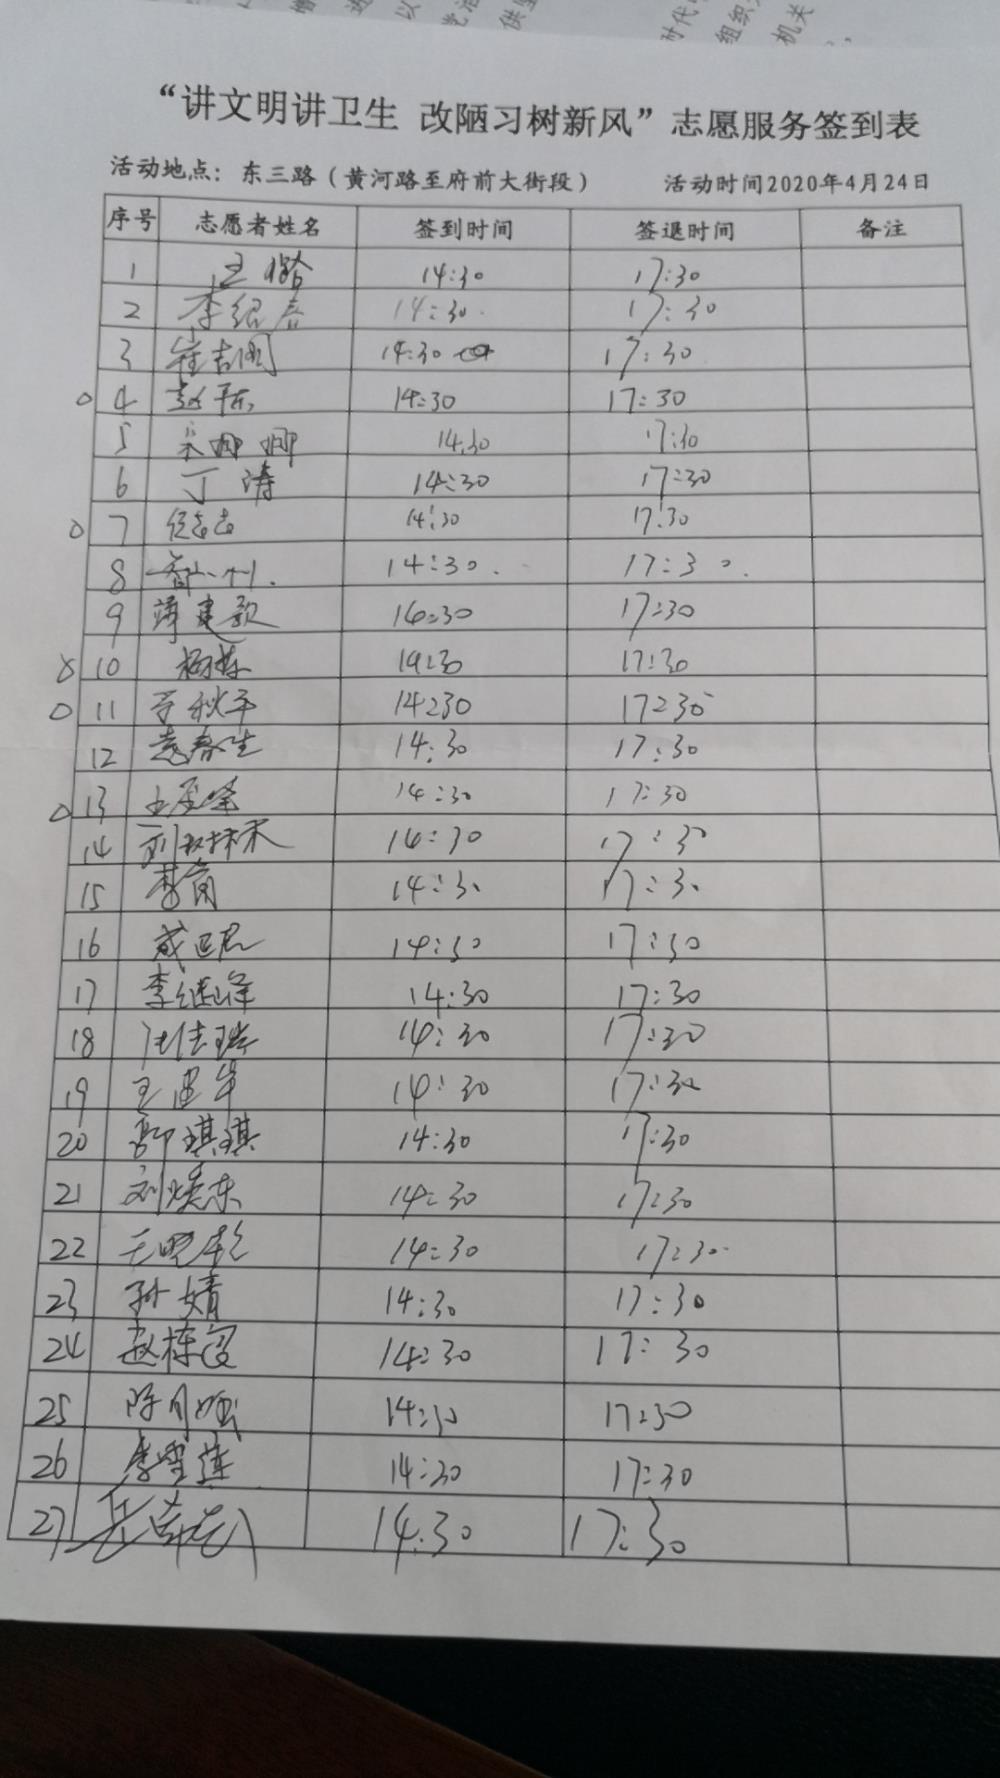 “讲文明讲卫生 改陋习树新风”志愿服务签到表
活动地点：东三路（黄河路至府前大街段） 活动时间2020年4月24日
序号 志愿者姓名 签到时间 签退时间 备注
1 王 14:30 17:30
2 李绍春 14:30 17:30
3 崔 14:30 17:30
4 赵 14:30 17:30
5 宋娜娜 14:30 17:30
6 丁涛 14:30 17:30
7 14:30 17:30
8 14:30 17:30
9 建 14:30 17:30
10 杨 14:30 17:30
11 秋平 14:30 17:30
12 春生 14:30 17:30
13 王 峰 14:30 17:30
14 刘 14:30 17:30
15 李 14:30 17:30
16 14:30 17:30
17 李继峰 14:30 17:30
18 14:30 17:30
19 王建 14:30 17:30
20 郭琪琪 14:30 17:30
21 刘 东 14:30 17:30
22 王晓 14:30 17:30
23 孙婧 14:30 17:30
24 赵栋 14:30 17:30
25 陈月娥 14:30 17:30
26 李雪莲 14:30 17:30
27 14:30 17:30